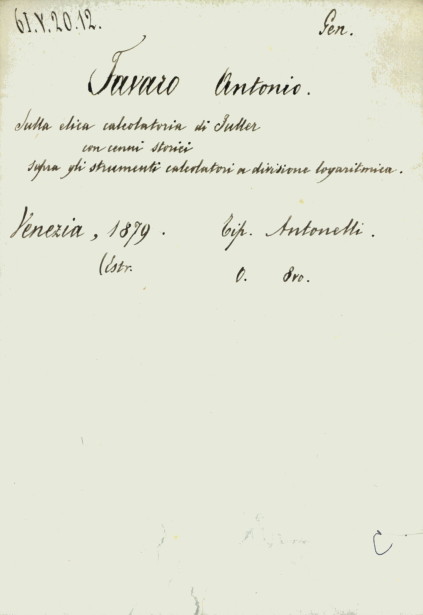 61.V.20.12. Gen.
Favaro Antonio.
Sulla elica calcolatoria di Fuller
con cenni storici
sopra gli strumenti calcolatori a divisione logaritmica.
Venezia, 1879. Tip. Antonelli.
(Estr. O. 8vo.
C